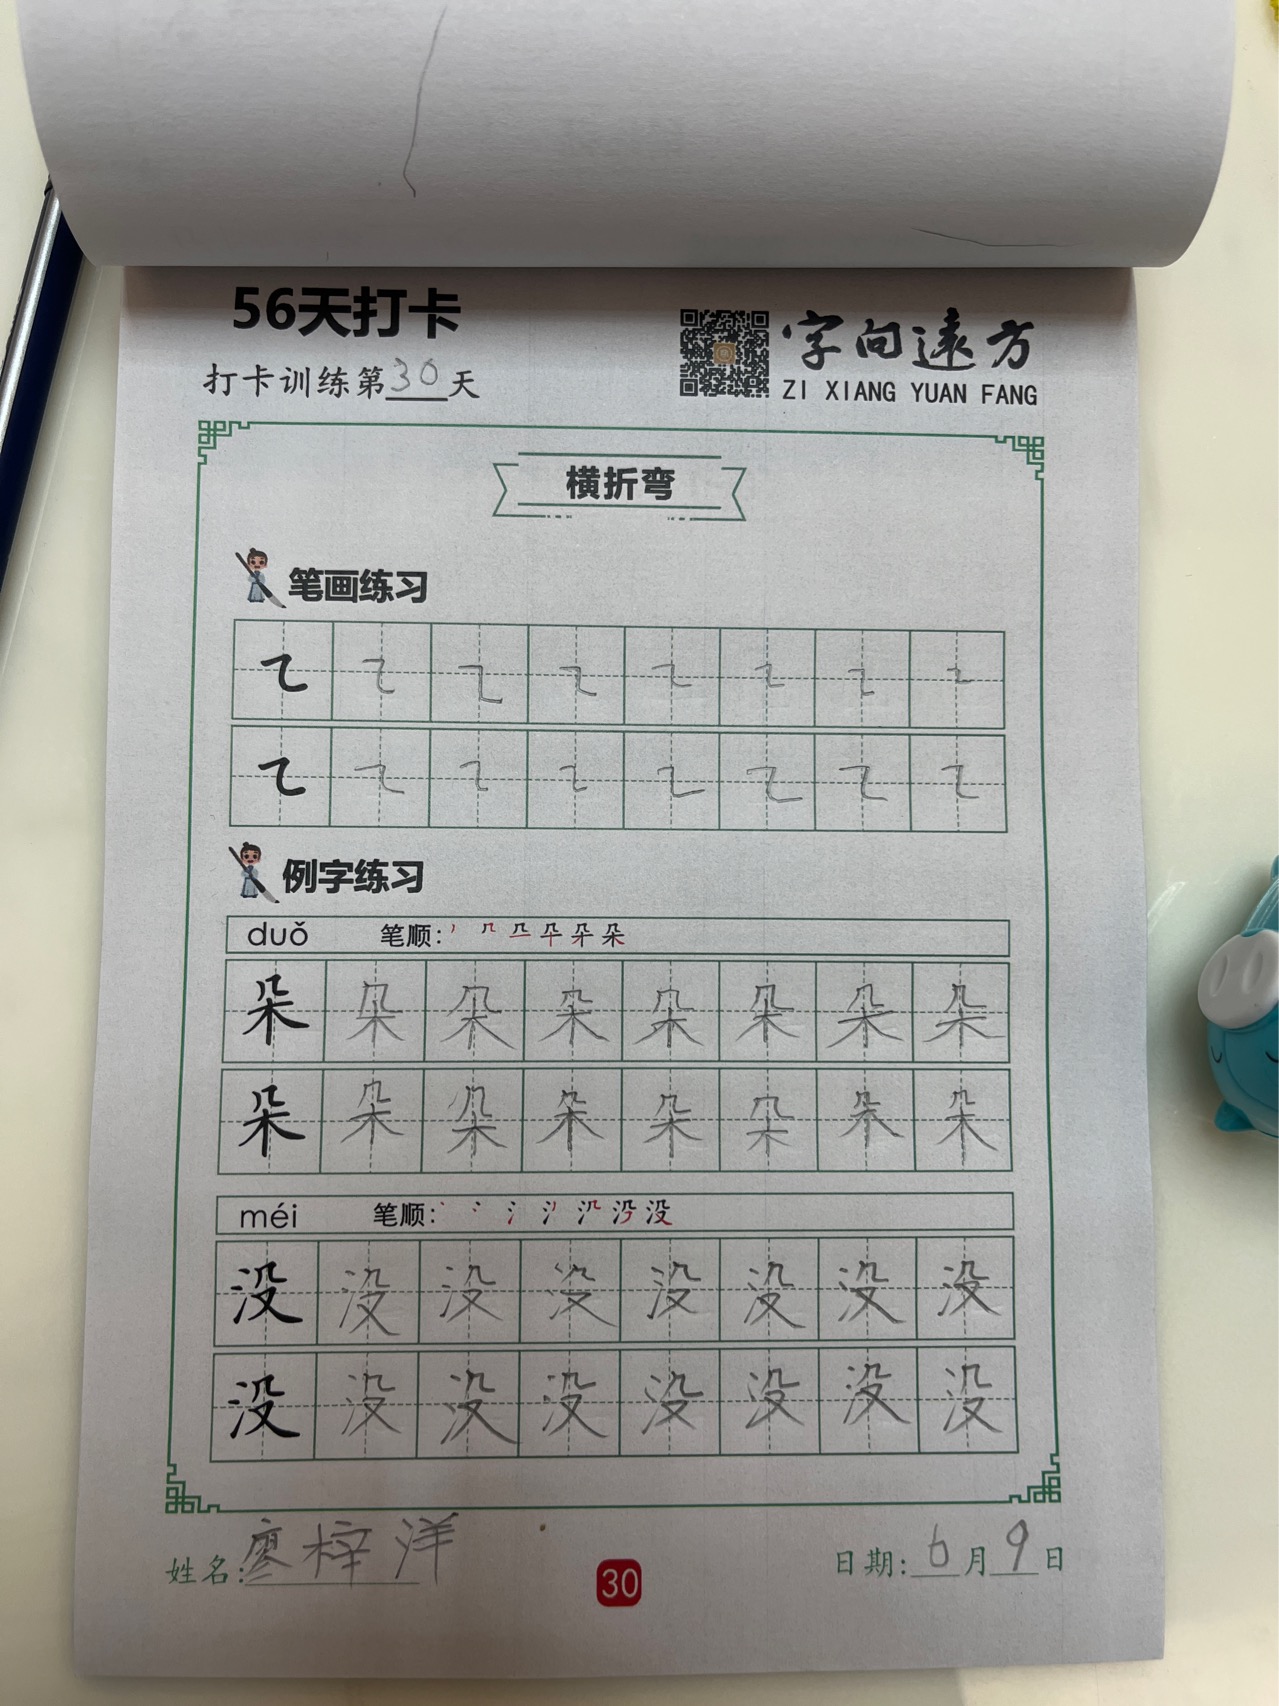 56天打卡
打卡训练第30天
字向遠方
ZI XIANG YUAN FANG
横折弯
笔画练习
㇍ ㇍ ㇍ ㇍ ㇍ ㇍ ㇍ ㇍
㇍ ㇍ ㇍ ㇍ ㇍ ㇍ ㇍ ㇍
例字练习
duǒ 笔顺:
朵 朵 朵 朵 朵 朵 朵 朵
朵 朵 朵 朵 朵 朵 朵 朵
méi 笔顺:
没 没 没 没 没 没 没 没
没 没 没 没 没 没 没 没
姓名:廖梓洋
30
日期:6月9日